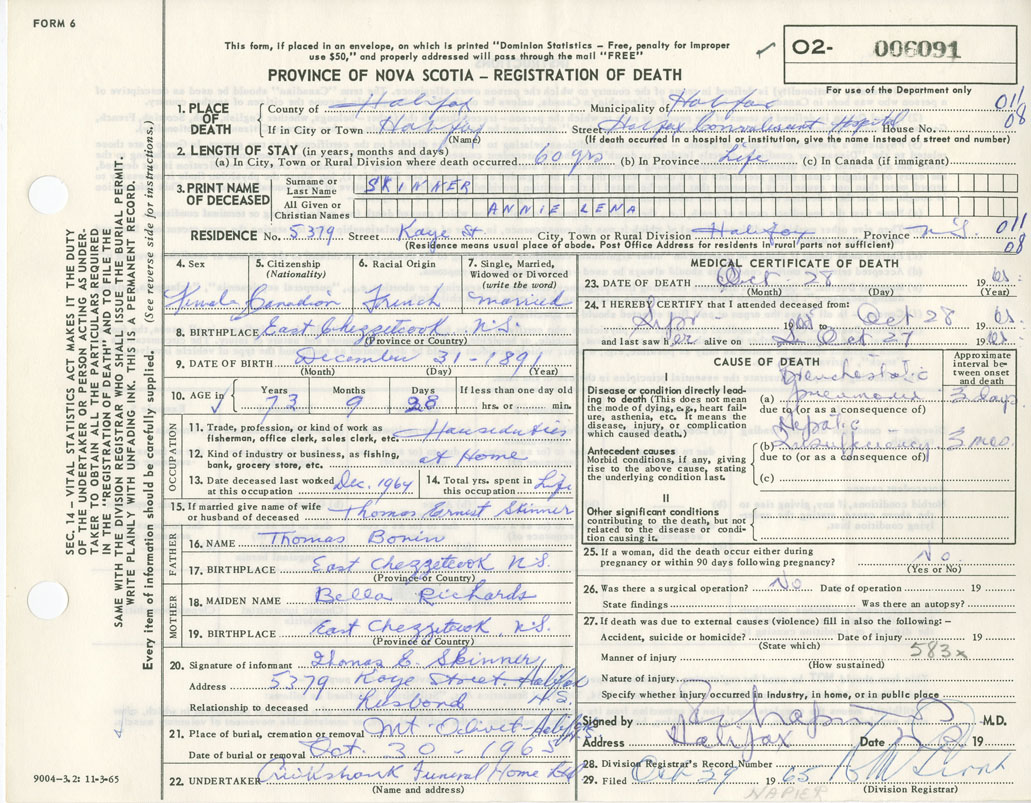 FORM 6
This form, if placed in an envelope, on which is printed "Dominion Statistics – Free, penalty for improper
use $50," and properly addressed will pass through the mail "FREE"
PROVINCE OF NOVA SCOTIA – REGISTRATION OF DEATH
O2- 006091
For use of the Department only
SEC. 14 – VITAL STATISTICS ACT MAKES IT THE DUTY
OF THE UNDERTAKER OR PERSON ACTING AS UNDER-
TAKER TO OBTAIN ALL THE PARTICULARS REQUIRED
IN THE "REGISTRATION OF DEATH" AND TO FILE THE
SAME WITH THE DIVISION REGISTRAR WHO SHALL ISSUE THE BURIAL PERMIT.
WRITE PLAINLY WITH UNFADING INK. THIS IS A PERMANENT RECORD.
Every item of information should be carefully supplied. (See reverse side for instructions.)
1. PLACE OF DEATH
County of Halifax Municipality of Halifax 011
If in City or Town Halifax Street Halifax Convalescent Hospital House No. 08
(Name) (If death occurred in a hospital or institution, give the name instead of street and number)
2. LENGTH OF STAY (in years, months and days)
(a) In City, Town or Rural Division where death occurred 60 yrs (b) In Province Life (c) In Canada (if immigrant)
3. PRINT NAME OF DECEASED
Surname or Last Name SKINNER
All Given or Christian Names ANNIE LENA
RESIDENCE No. 5379 Street Kaye St City, Town or Rural Division Halifax Province N.S. 011
(Residence means usual place of abode. Post Office Address for residents in rural parts not sufficient) 08
4. Sex 5. Citizenship (Nationality) 6. Racial Origin 7. Single, Married, Widowed or Divorced (write the word)
Female Canadian French Married
8. BIRTHPLACE East Chezzetcook N.S.
(Province or Country)
9. DATE OF BIRTH December 31-1891
(Month) (Day) (Year)
10. AGE in Years Months Days If less than one day old
73 9 28 hrs. or min.
OCCUPATION
11. Trade, profession, or kind of work as fisherman, office clerk, sales clerk, etc. Houseduties
12. Kind of industry or business, as fishing, bank, grocery store, etc. at Home
13. Date deceased last worked at this occupation Dec. 1964 14. Total yrs. spent in this occupation Life
15. If married give name of wife or husband of deceased Thomas Ernest Skinner
FATHER
16. NAME Thomas Bonin
17. BIRTHPLACE East Chezzetcook N.S.
(Province or Country)
MOTHER
18. MAIDEN NAME Bella Richards
19. BIRTHPLACE East Chezzetcook, N.S.
(Province or Country)
20. Signature of informant Thomas E. Skinner
Address 5379 Kaye Street Halifax N.S.
Relationship to deceased husband
21. Place of burial, cremation or removal Mt. Olivet Halifax
Date of burial or removal Oct. 30-1965
22. UNDERTAKER Cruikshank Funeral Home Ltd
(Name and address)
9004-3.2: 11-3-65
MEDICAL CERTIFICATE OF DEATH
23. DATE OF DEATH Oct - 28 19 65
(Month) (Day) (Year)
24. I HEREBY CERTIFY that I attended deceased from:
to Oct 28 19 65
and last saw her alive on Oct 27 19 65
CAUSE OF DEATH
Approximate interval between onset and death
I
Disease or condition directly leading to death (This does not mean the mode of dying, e.g., heart failure, asthenia, etc. It means the disease, injury, or complication which caused death.)
(a) pneumonia 3 days
due to (or as a consequence of)
Hepatic
(b) Insufficiency 3 mos.
due to (or as a consequence of)
(c)
Antecedent causes
Morbid conditions, if any, giving rise to the above cause, stating the underlying condition last.
II
Other significant conditions
contributing to the death, but not related to the disease or condition causing it.
25. If a woman, did the death occur either during pregnancy or within 90 days following pregnancy? No
(Yes or No)
26. Was there a surgical operation? No Date of operation 19
State findings Was there an autopsy?
27. If death was due to external causes (violence) fill in also the following: –
Accident, suicide or homicide? Date of injury 19
(State which)
Manner of injury 583x
(How sustained)
Nature of injury
Specify whether injury occurred in industry, in home, or in public place
Signed by M.D.
Address Halifax Date 19
28. Division Registrar's Record Number
29. Filed Oct 29 1965
(Division Registrar)
NAPIER